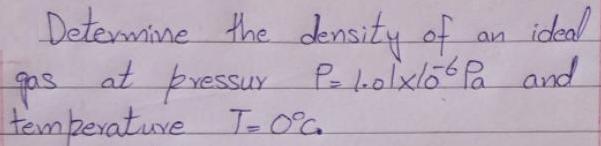 Determine the density of an ideal
gas at pressur P=1.01x10^-6 Pa and
temperature T=0°C.